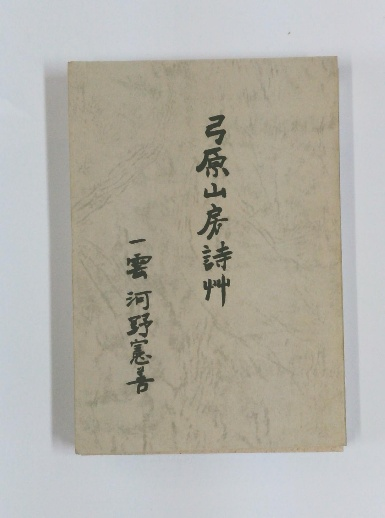 弓原山房詩艸
一雲 河野憲善